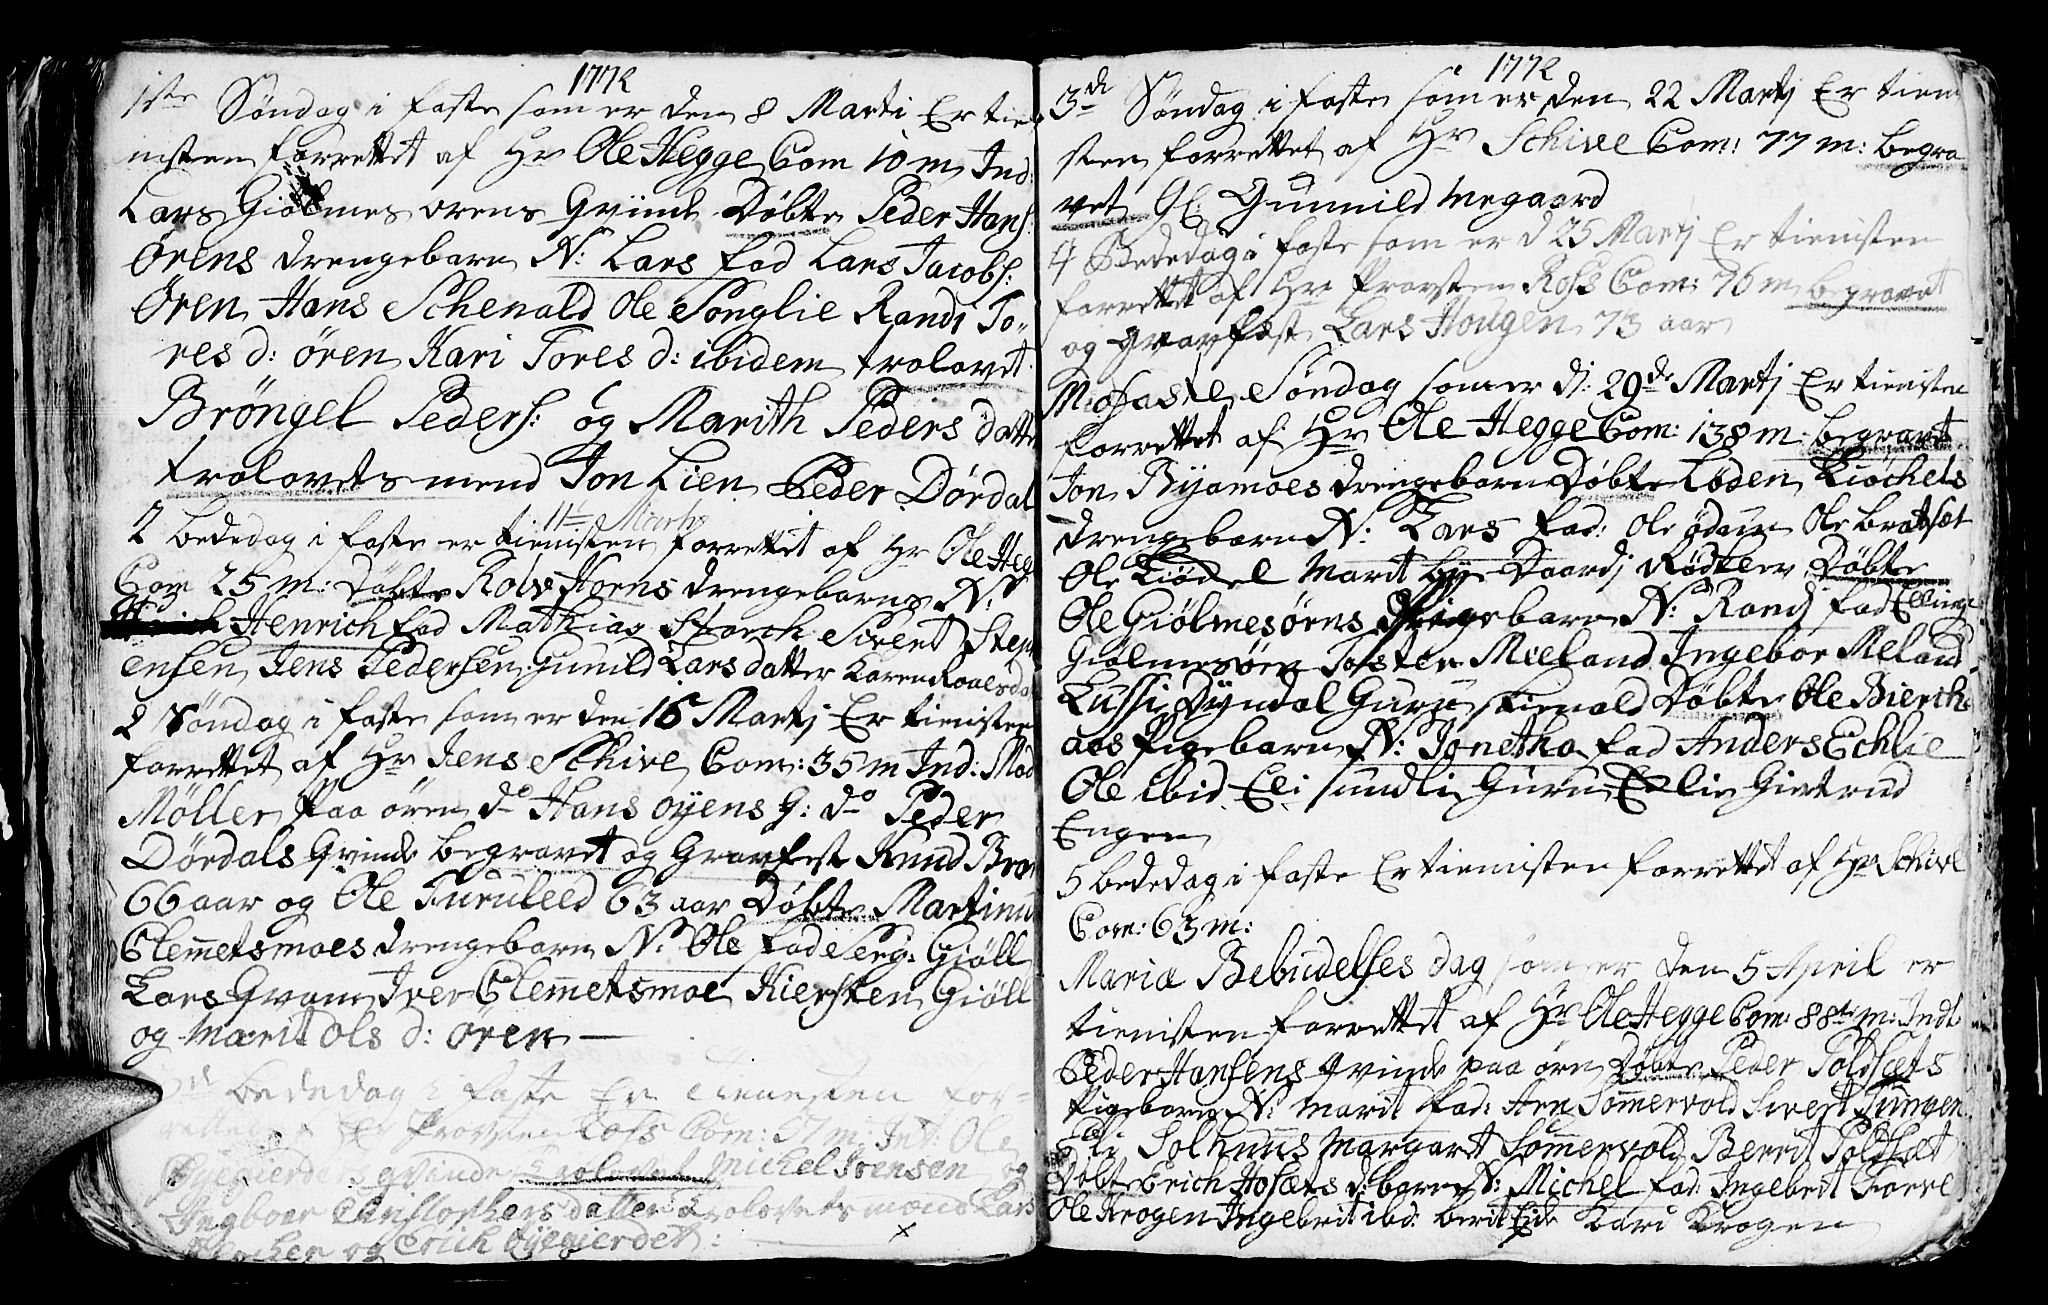 1772
1ste Søndag i faste som er den 8 Marti Er tie
nisten forrettet af Hr Ole Hegge Com 10 m Ind:
Lars Giølmes ørens Qvinde Døbte Peder Hans:
Ørens drengebarn N: Lars fad Lars Jacobs:
Øren Hans Schenald Ole Songlie Randi To¬
res d: ören Kari Tores d: ibidem trolovet
Bröngel Peders: og Marith Peders datter
trolovets mend Jon Lien Peder Dördal
11te Marti
2 bededag i faste er tienisten forrettet af Hr Ole Heg
Com 25 m: Døbte Rolv Hoens drengebarn N:
Henrich fad Mathias Storch Sivert Steph
ensen Jens Pedersen Gunild Larsdatter Karen Roaldsda
2 Søndag i faste som er den 15 Martj Er tienisten
forrettet af Hr Jens Schive Com: 35 m Ind: Mad
Møller paa ören do Hans øyens G: do Peder
Dördals Qvinde begravet og Gravfest Knud Bra
66 aar og Ole Furuleed 63 aar Döbte Martinu
Clemetsmoes drengebarn N: Ole fad Serg: Giøll
Lars Gvam Iver Clemetsmoe Kiersten Giøll
og Marit Ols d: ören
3d bededag i faste Er tienesten for¬
rettedt af Hr Provsten Ross Com: 57 m: Int: Ole
Øyegierdets qvinde trolovet Michel Irensen og
Ingboer Christophers datter trolovets mænd Lars
og Erich Øyegierdet:
1772
3de Søndag i faste som er den 22 Martj Er tieni
sten forrettet af Hr Schive Com: 77 m: begra
vet Gl: Gunnild Megaard
4 Bededag i faste som er d 25 Martj Er tienisten
forrettet af Hr Provsten Ross Com: 76 m begravet
og Gravfæst Lars Hougen 73 aar
Mifaste Søndag som er d: 29de Martj Er tienisten
forrettet af Hr Ole Hegge Com: 138 m: begravet
Jon Byamoes drengebarn Døbte Loden Kiöchels
drengebarn N: Lars fad: Ole ödaun Ole Bratset
Ole Kiöckel Marit bye Daardj Rødtler Døbte
Ole Giölmesørns Pigebarn N: Randj fad Elling
Giølmesøren Torsten Mieland Ingebor Meland
Lussi Dyndal Guru Skienald Døbte Ole Bierch
aas Pigebarn N: Jonetha fad Anders Echlie
Ole ibid Eli Sundli Guru Echlie Giertrud
Engen
5 bededag i faste Er tienisten forrettet af Hr Schive
Com: 63 m:
Mariæ Bebudelses dag som er den 5 April er
tienisten forrettet af Hr Ole Hegge Com: 88 m: Indl:
Peder Hansens qvinde paa ørn Döbte Peder Soldsets
Pigebarn N: Marit Fad: Arn Sommervold Sivert Tungen
Eli Solhuus Margaret Sommervold Berrit Soldset
Döbte Erich Hosets d: barn N: Michel fad: Ingebrit Gorve
Ole Krogen Ingebrit ibd: Berit Eide Kari Krogen